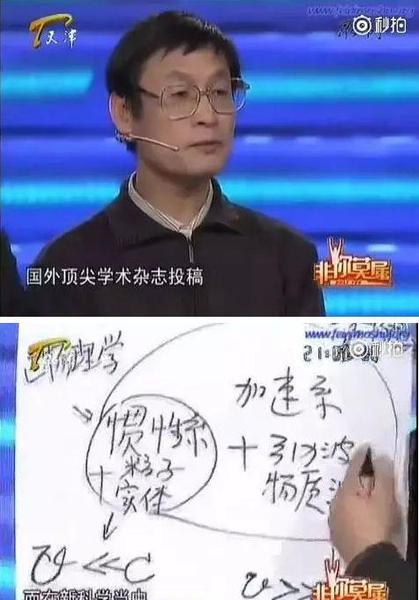 天津
秒拍
国外顶尖学术杂志投稿
非你莫属
物理学
秒拍
加速系
惯性系
+引力波
+粒子
物质
实体
v<<C
v>>
而在新科学当中
非你莫属